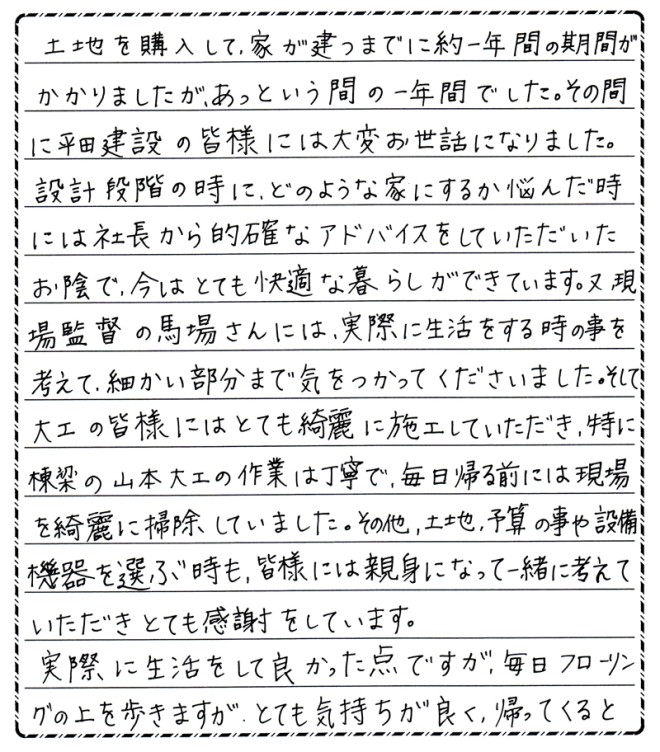 土地を購入して、家が建つまでに約一年間の期間が
かかりましたが、あっという間の一年間でした。その間
に平田建設の皆様には大変お世話になりました。
設計段階の時に、どのような家にするか悩んだ時
には社長から的確なアドバイスをしていただいた
お陰で、今はとても快適な暮らしができています。又現
場監督の馬場さんには、実際に生活をする時の事を
考えて、細かい部分まで気をつかってくださいました。そして
大工の皆様にはとても綺麗に施工していただき、特に
棟梁の山本大工の作業は丁寧で、毎日帰る前には現場
を綺麗に掃除していました。その他、土地、予算の事や設備
機器を選ぶ時も、皆様には親身になって一緒に考えて
いただきとても感謝をしています。
実際に生活をして良かった点ですが、毎日フローリン
グの上を歩きますが、とても気持ちが良く、帰ってくると